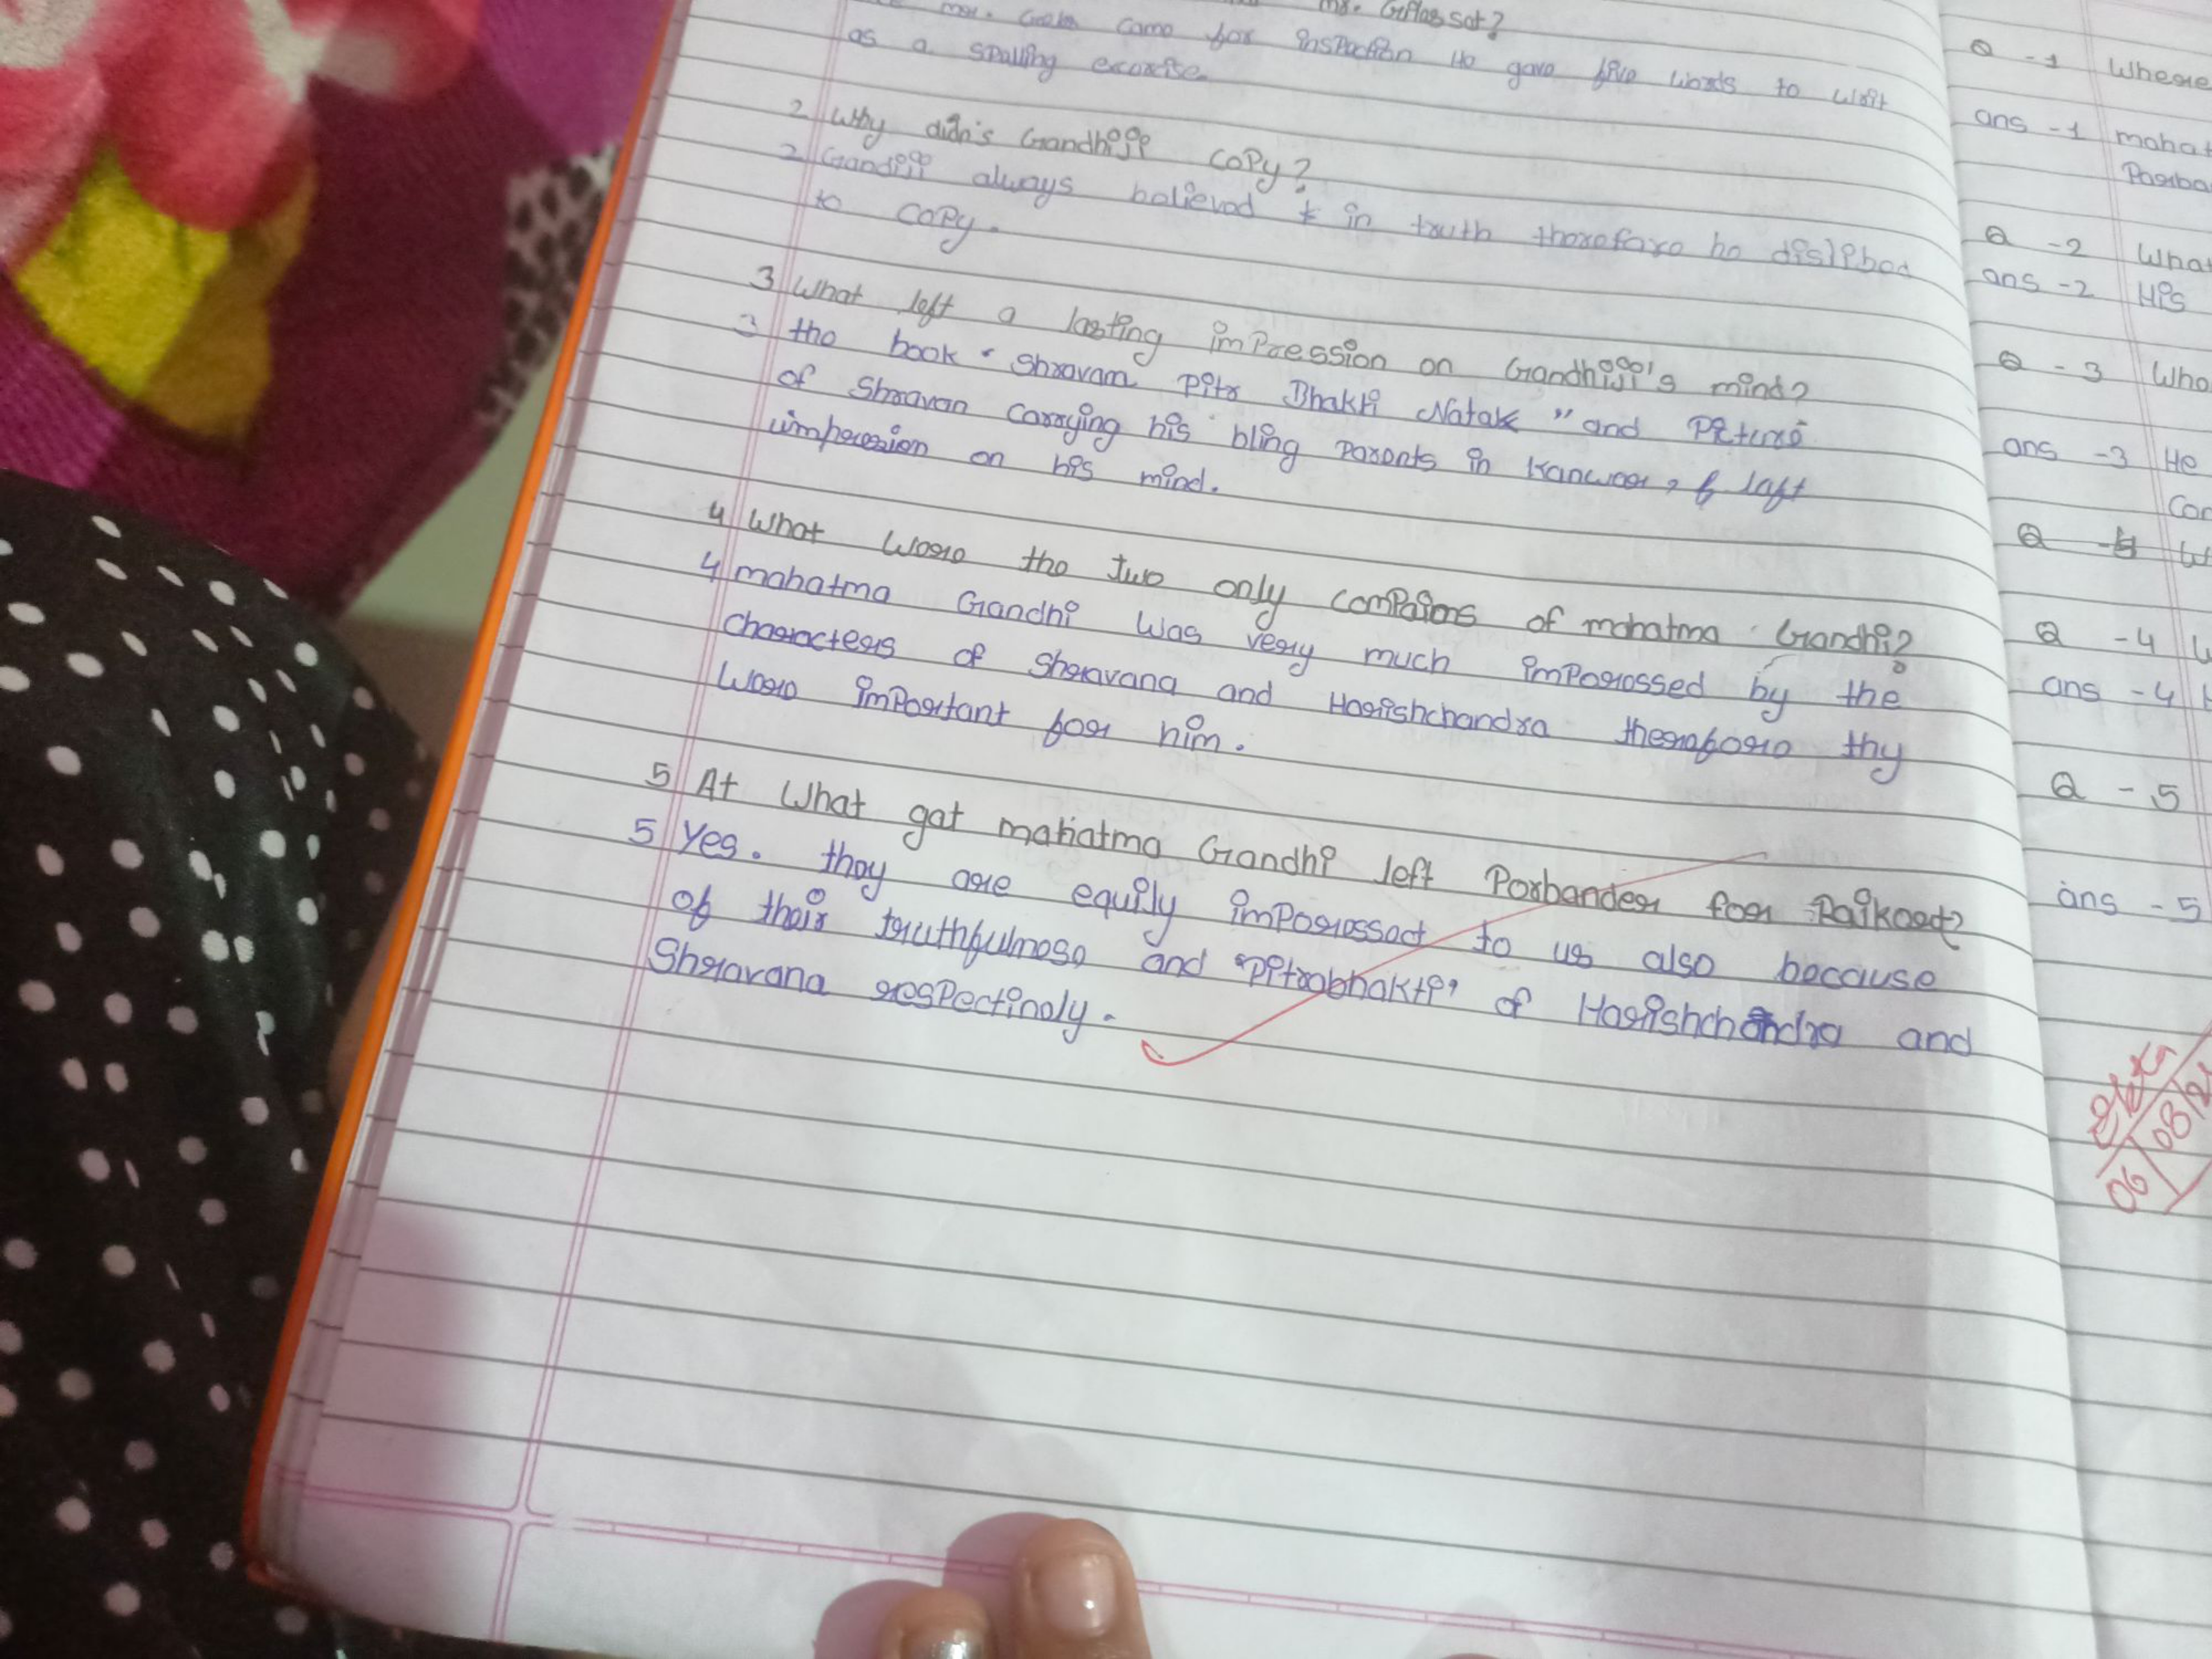 mr. came for inspection He gave five words to writ
as a spalling excorcise
2 Why didn's Gandhiji copy?
2 Gandiji always belived in truth therefore he disliked
to copy.
3 What left a lasting impression on Gandhiji's mind?
3 the book "Shravan Pitr Bhakti Natak" and Picture
of Shravan carrying his bling parents in Kanwar, left
impression on his mind.
4 What were the two only compaions of mahatma Gandhi?
4 mahatma Gandhi was very much impressed by the
characters of Shravana and Harishchandra therefore thy
were important for him.
5 At What gat mahatma Gandhi left Porbander for Rajkort?
5 Yes. they are equily impressot to us also because
of their truthfulnose and "Pitrabhakti" of Harishchandra and
Shravana respectinaly.
Q -1 Where
ans -1 mahat
Porba
Q -2 What
ans -2 His
Q -3 Who
ans -3 He
Con
Q -4
ans -4
Q -5
ans -5